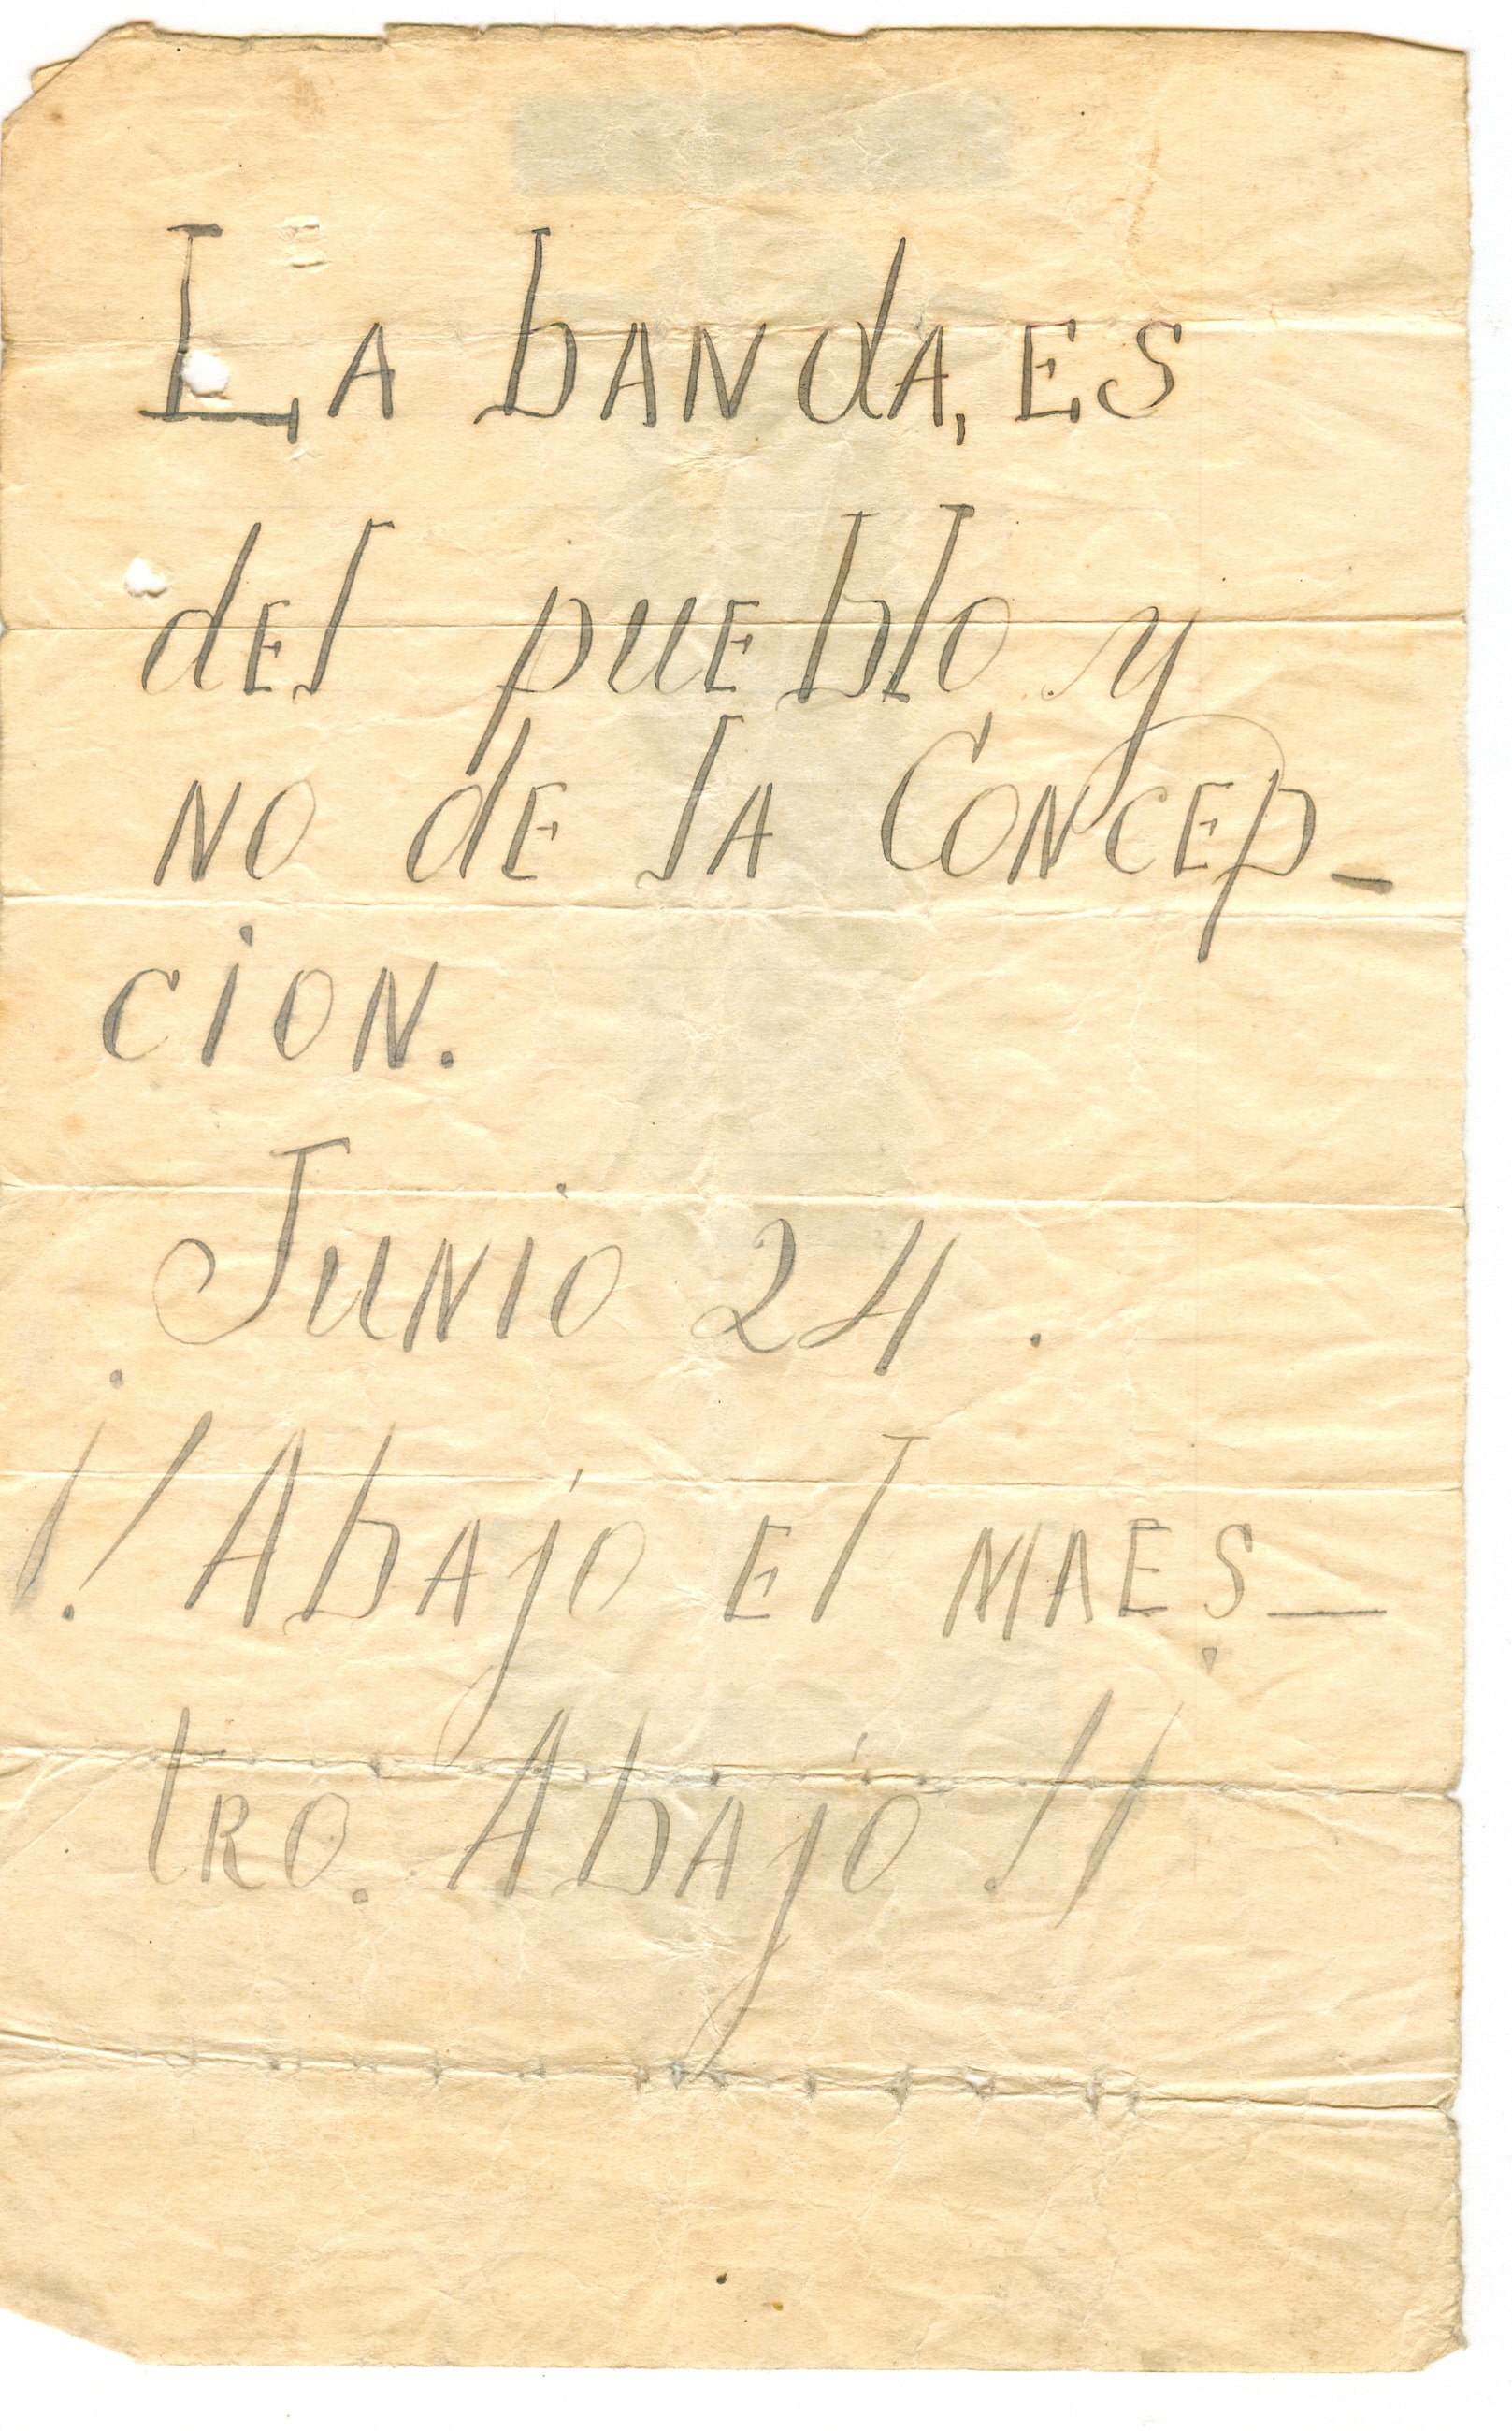 La banda, es
del pueblo y
no de la Concep-
cion.
Junio 24.
¡! Abajo el maes-
tro. Abajo !¡